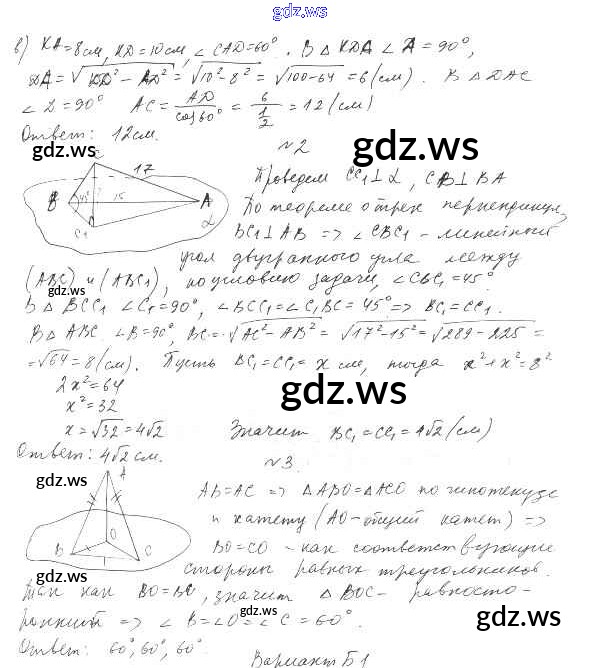 gdz.ws
в) KA=8см, KD=10см, ∠CAD=60°. В △KDA ∠A=90°,
DA=√KD²-AD²=√10²-8²=√100-64=6(см). В △DAC
∠D=90° AC=AD/cos60°=6/(1/2)=12(см)
Ответ: 12см.
№2
gdz.ws
gdz.ws
17
B 45° 15 A
C1 α
Проведем CC₁⊥α, CB⊥BA
По теореме о трех перпендикул.
BC₁⊥AB => ∠CBC₁-линейный
угол двугранного угла между
gdz.ws
(ABC) и (ABC₁), по условию задачи, ∠CBC₁=45°
gdz.ws
В △BCC₁ ∠C₁=90°, ∠BCC₁=∠C₁BC=45°=> BC₁=CC₁.
В △ABC ∠B=90°, BC=√AC²-AB²=√17²-15²=√289-225=
=√64=8(см). Пусть BC₁=CC₁=x см, тогда x²+x²=8²
2x²=64
gdz.ws
x²=32
x=√32=4√2 Значит BC₁=CC₁=4√2(см)
Ответ: 4√2см.
№3
gdz.ws
A
O
B C
AB=AC => △ABO=△ACO по гипотенузе
и катету (AO-общий катет) =>
BO=CO - как соответствующие
стороны равных треугольников.
gdz.ws
Так как BO=BC, значит △BOC- равносто-
ронний => ∠B=∠O=∠C=60°.
gdz.ws
Ответ: 60°, 60°, 60°.
Вариант Б1
gdz.ws